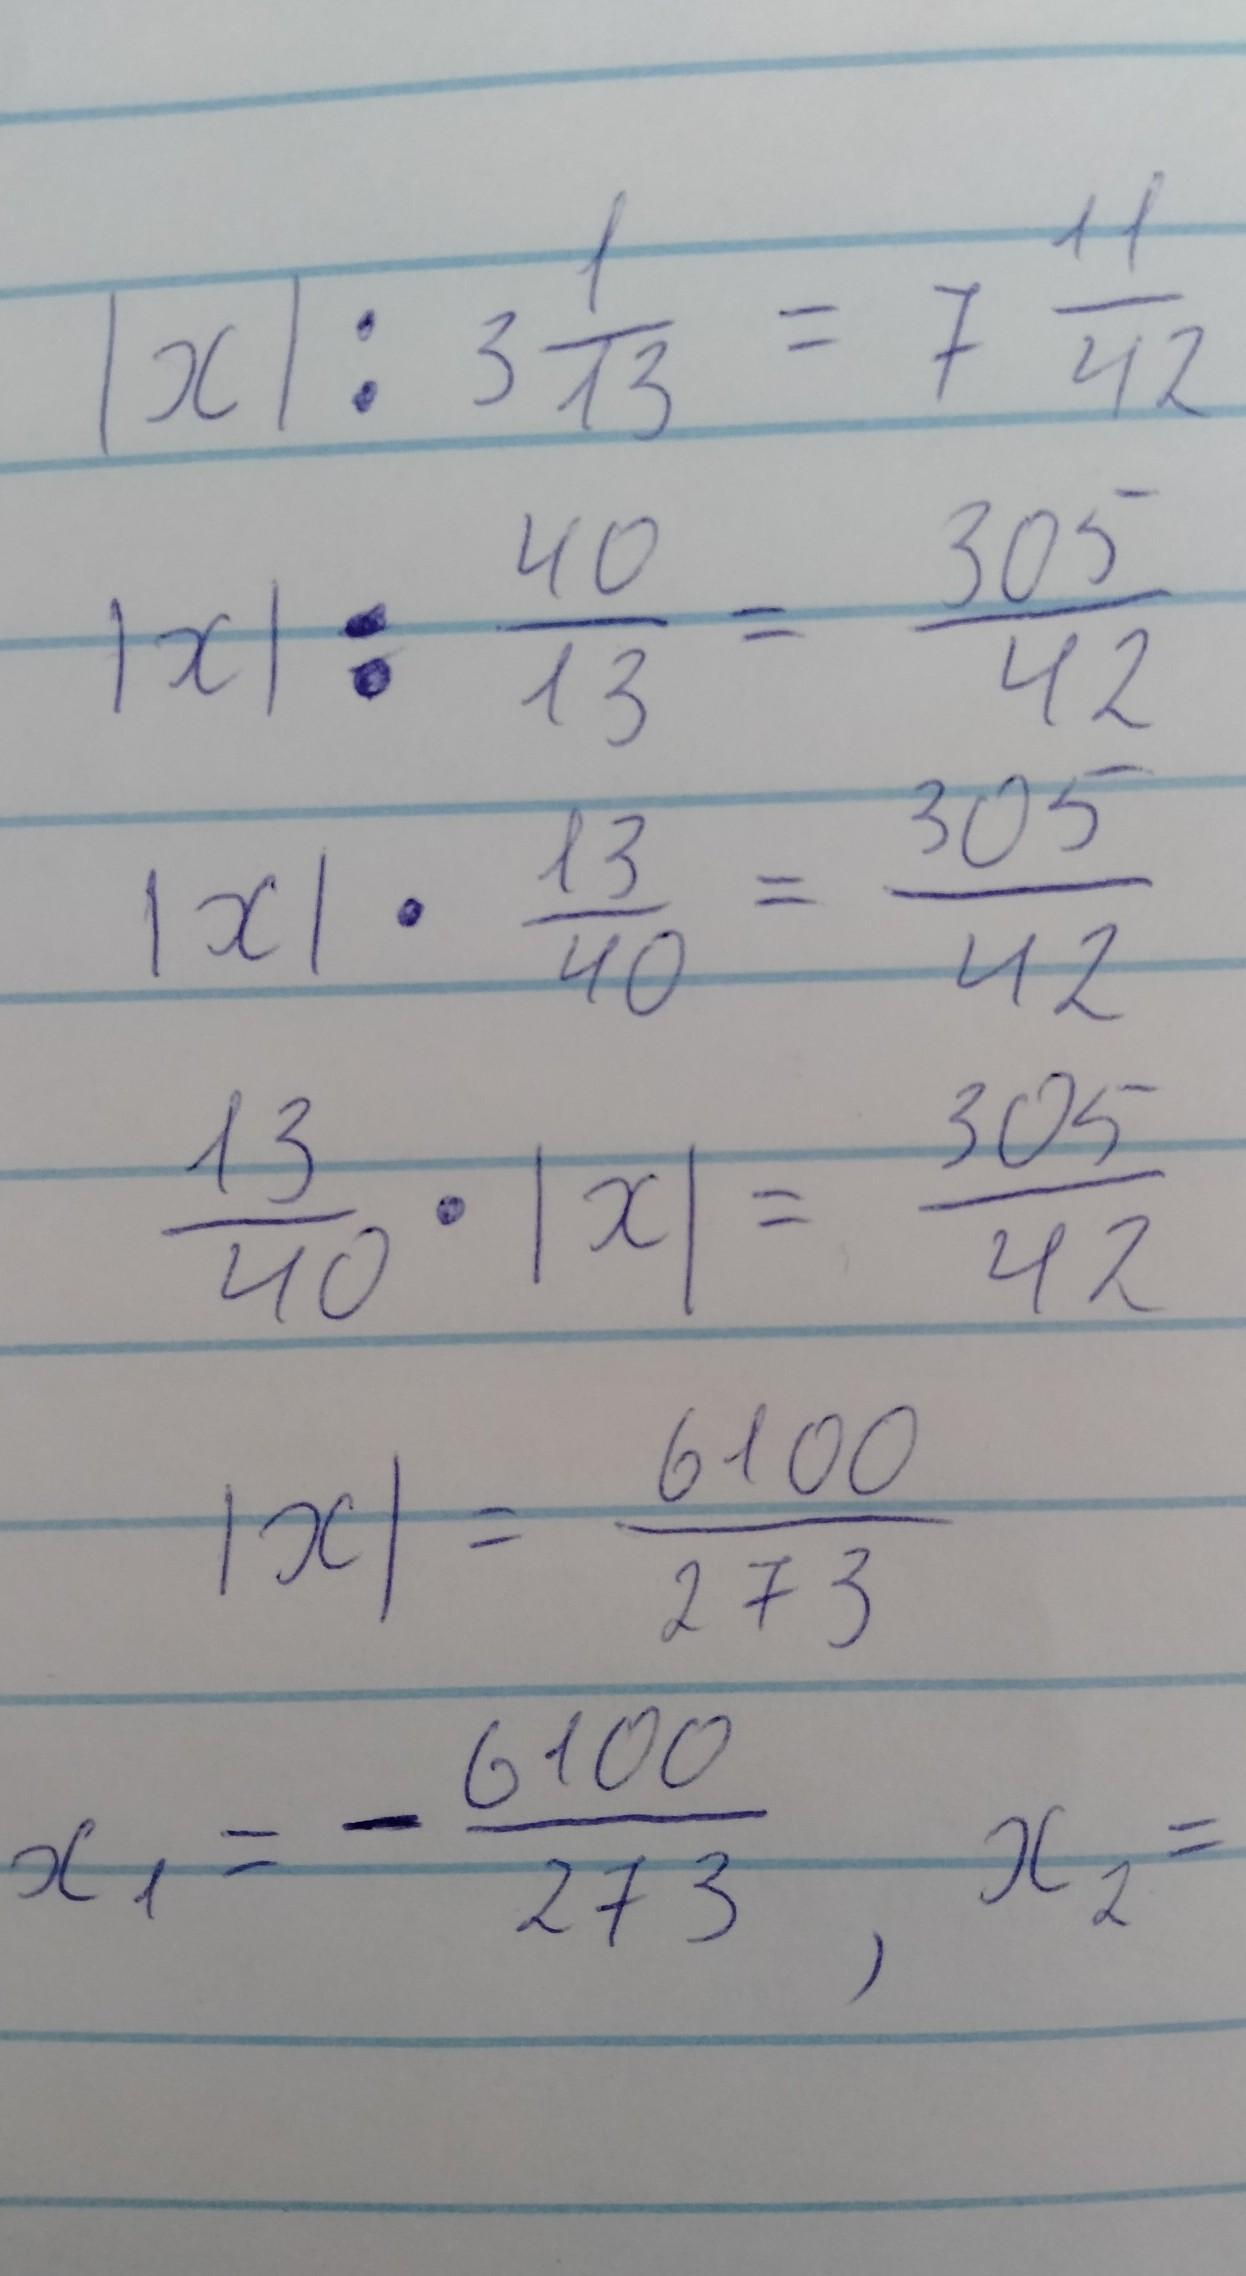 |x| : 3 1/13 = 7 11/42
|x| : 40/13 = 305/42
|x| · 13/40 = 305/42
13/40 · |x| = 305/42
|x| = 6100/273
x₁ = - 6100/273 , x₂ =